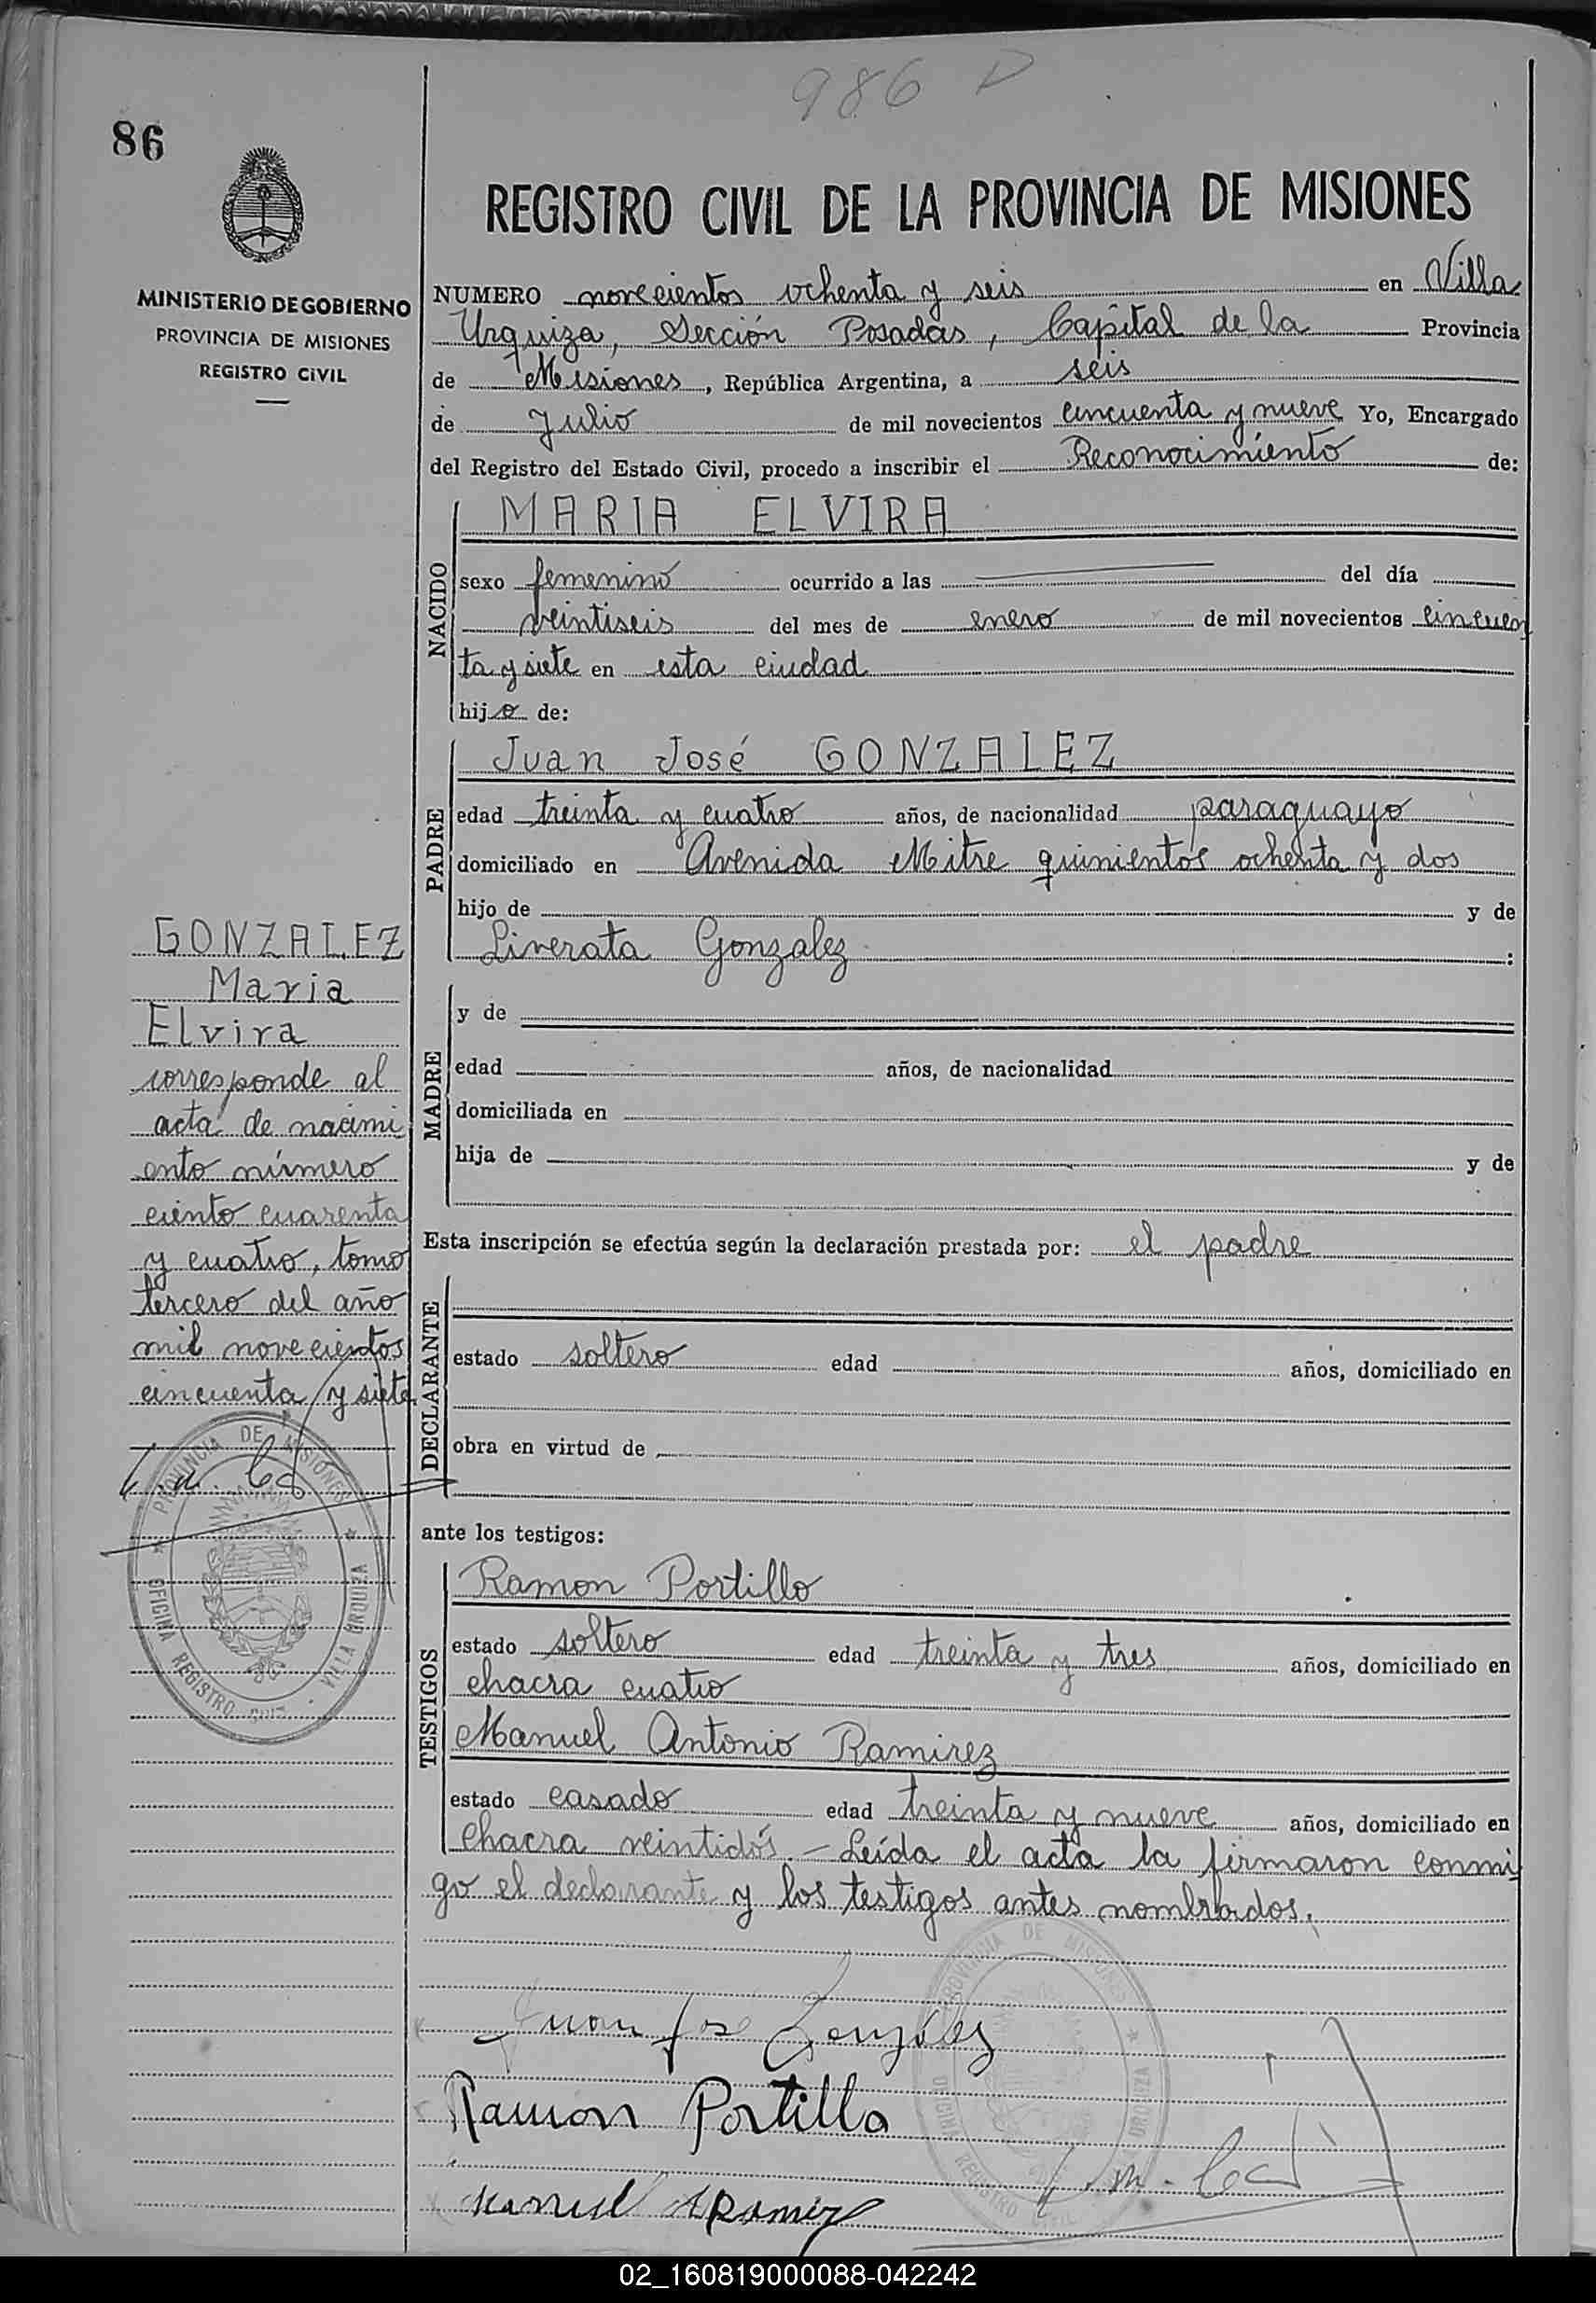 986 D
86
REGISTRO CIVIL DE LA PROVINCIA DE MISIONES
MINISTERIO DE GOBIERNO
PROVINCIA DE MISIONES
REGISTRO CIVIL
NUMERO novecientos ochenta y seis en Villa
Urquiza, Sección Posadas, Capital de la Provincia
de Misiones, República Argentina, a seis
de Julio de mil novecientos cincuenta y nueve Yo, Encargado
del Registro del Estado Civil, procedo a inscribir el Reconocimiento de:
NACIDO
MARIA ELVIRA
sexo femenino ocurrido a las del día
veintiseis del mes de enero de mil novecientos cincuen
ta y siete en esta ciudad
hija de:
PADRE
Juan José GONZALEZ
edad treinta y cuatro años, de nacionalidad paraguayo
domiciliado en Avenida Mitre quinientos ochenta y dos
hijo de y de
Liverata Gonzalez :
MADRE
y de
edad años, de nacionalidad
domiciliada en
hija de y de
Esta inscripción se efectúa según la declaración prestada por: el padre
DECLARANTE
estado soltero edad años, domiciliado en
obra en virtud de
ante los testigos:
TESTIGOS
Ramon Portillo
estado soltero edad treinta y tres años, domiciliado en
chacra cuatro
Manuel Antonio Ramirez
estado casado edad treinta y nueve años, domiciliado en
chacra veintidós.- Leída el acta la firmaron conmi
go el declarante y los testigos antes nombrados.
GONZALEZ
Maria
Elvira
corresponde al
acta de nacimi
ento número
ciento cuarenta
y cuatro, tomo
tercero del año
mil novecientos
cincuenta y siete
PROVINCIA DE MISIONES
OFICINA REGISTRO CIVIL VILLA URQUIZA
Juan Jose González
Ramon Portillo
Manuel A Ramirez
PROVINCIA DE MISIONES
OFICINA REGISTRO CIVIL URQUIZA
02_160819000088-042242